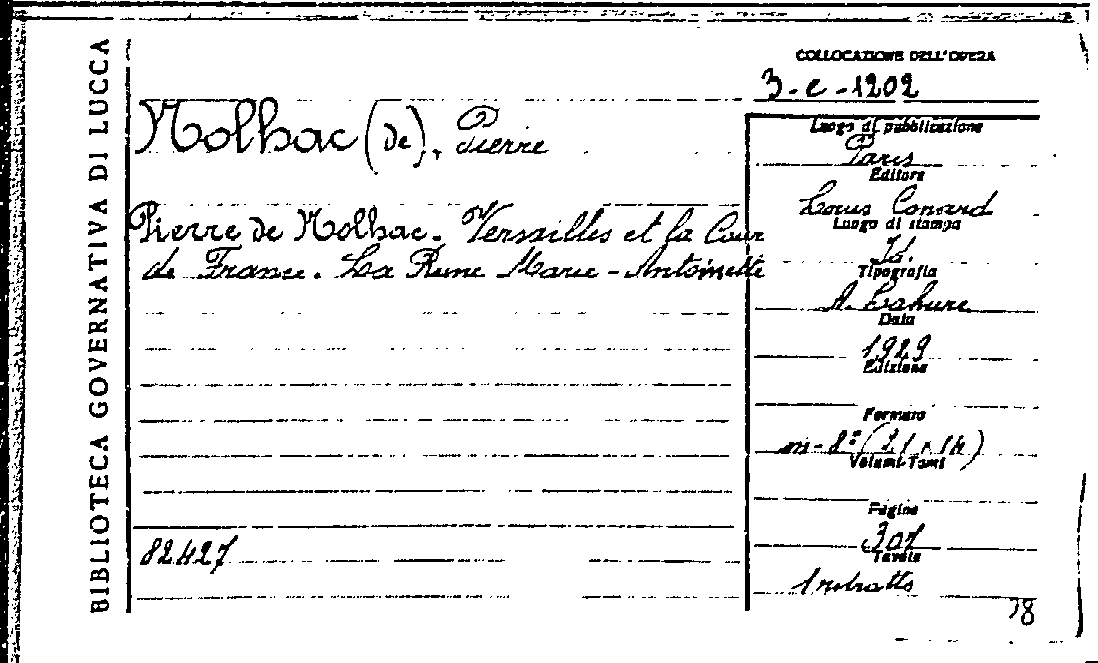 BIBLIOTECA GOVERNATIVA DI LUCCA
COLLOCAZIONE DELL'OPERA
3-e-1202
Nolhac (de), Pierre
Pierre de Nolhac. Versailles et la Cour
de France. La Reine Marie-Antoinette
82427
Luogo di pubblicazione
Paris
Editore
Louis Conard
Luogo di stampa
Id.
Tipografia
A. Lahure
Data
1929
Edizione
Formato
in-8º (21 x 14)
Volumi-Tomi
Pagine
307
Tavole
1 ritratto
78